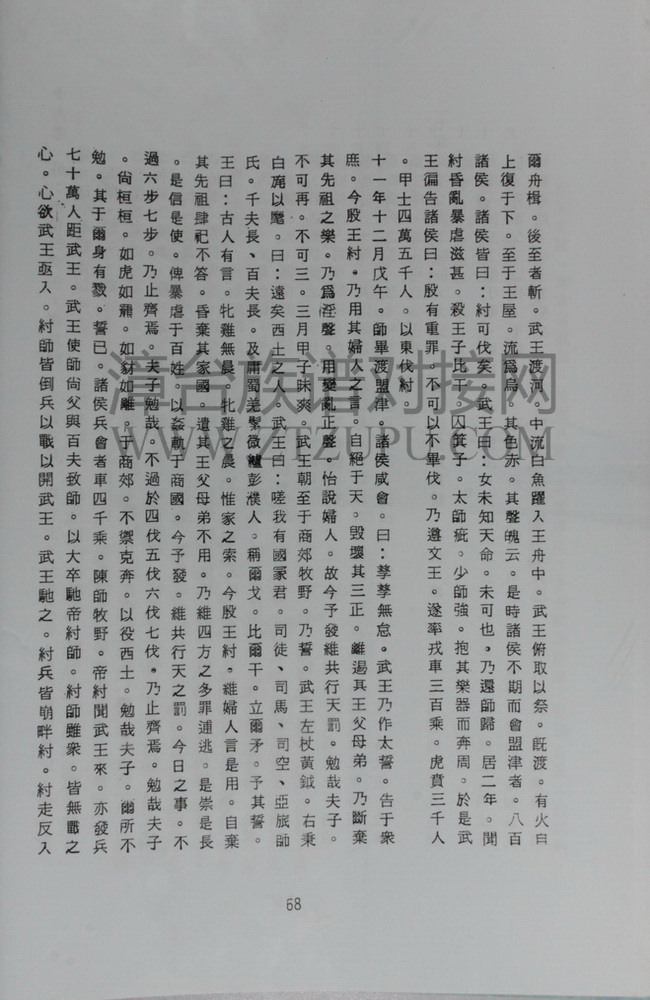 爾舟楫。後至者斬。武王渡河。中流白魚躍入王舟中。武王俯取以祭。旣渡。有火自
上復于下。至于王屋。流爲烏。其色赤。其聲魄云。是時諸侯不期而會盟津者。八百
諸侯。諸侯皆曰：紂可伐矣。武王曰：女未知天命。未可也。乃還師歸。居二年。聞
紂昏亂暴虐滋甚。殺王子比干。囚箕子。太師疵。少師強。抱其樂器而奔周。於是武
王徧告諸侯曰：殷有重罪。不可以不畢伐。乃遵文王。遂率戎車三百乘。虎賁三千人
。甲士四萬五千人。以東伐紂。
十一年十二月戊午。師畢渡盟津。諸侯咸會。曰：孳孳無怠。武王乃作太誓。告于衆
庶。今殷王紂。乃用其婦人之言。自絕于天。毀壞其三正。離逷其王父母弟。乃斷棄
其先祖之樂。乃爲淫聲。用變亂正聲。怡說婦人。故今予發維共行天罰。勉哉夫子。
不可再。不可三。三月甲子昧爽。武王朝至于商郊牧野。乃誓。武王左杖黃鉞。右秉
白旄以麾。曰：遠矣西土之人。武王曰：嗟我有國冢君。司徒、司馬、司空、亞旅師
氏。千夫長、百夫長。及庸蜀羌髳微纑彭濮人。稱爾戈。比爾干。立爾矛。予其誓。
王曰：古人有言。牝雞無晨。牝雞之晨。惟家之索。今殷王紂。維婦人言是用。自棄
其先祖肆祀不答。昏棄其家國。遺其王父母弟不用。乃維四方之多罪逋逃。是崇是長
。是信是使。俾暴虐于百姓。以姦軌于商國。今予發。維共行天之罰。今日之事。不
過六步七步。乃止齊焉。夫子勉哉。不過於四伐五伐六伐七伐。乃止齊焉。勉哉夫子
。尙桓桓。如虎如羆。如豺如離。于商郊。不禦克奔。以役西土。勉哉夫子。爾所不
勉。其于爾身有戮。誓已　諸侯兵會者車四千乘。陳師牧野。帝紂聞武王來。亦發兵
七十萬人距武王。武王使師尙父與百夫致師。以大卒馳帝紂師。紂師雖衆。皆無戰之
心。心欲武王亟入。紂師皆倒兵以戰以開武王。武王馳之。紂兵皆崩畔紂。紂走反入
68
清台族谱对接网
WWW.ZTZUPU.COM